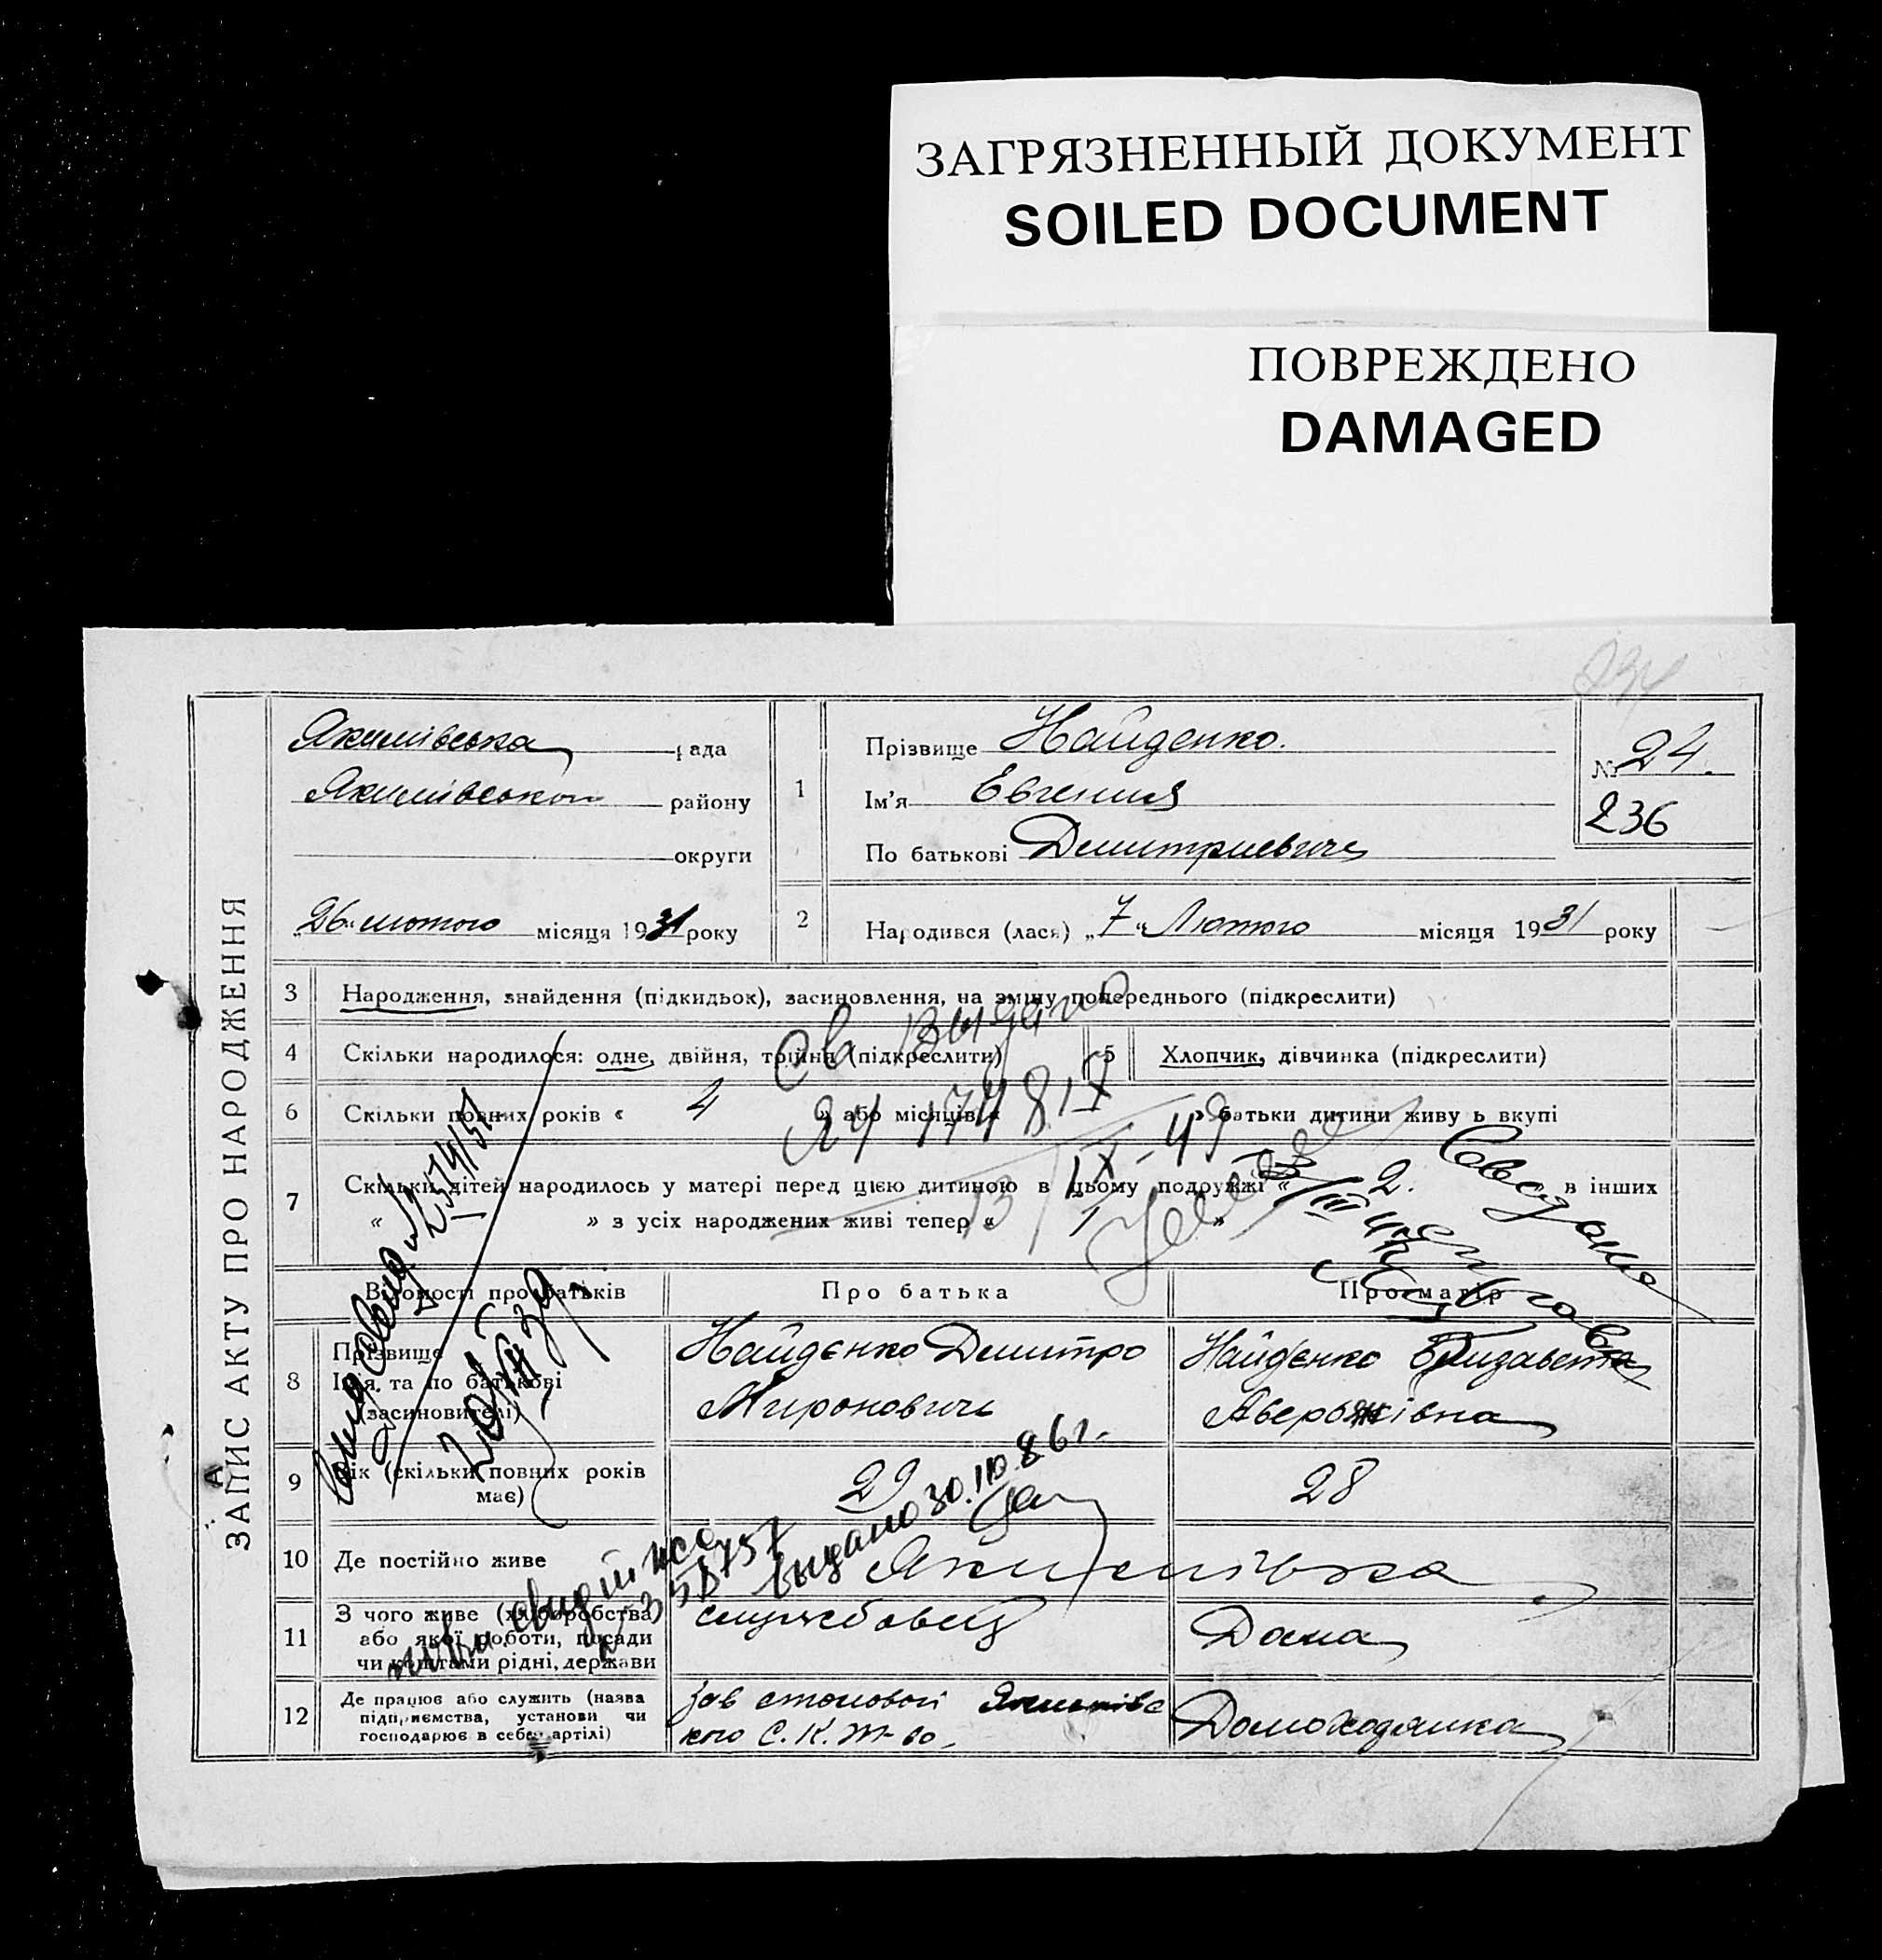 ЗАГРЯЗНЕННЫЙ ДОКУМЕНТ
SOILED DOCUMENT
ПОВРЕЖДЕНО
DAMAGED
ЗАПИС АКТУ ПРО НАРОДЖЕННЯ
Якимівська рада
Якимівського району
округи
„26" лютого місяця 1931 року
1
Прізвище Найденко.
Ім'я Евгений
По батькові Дмитриевич
№ 24.
236
2
Народився (лася) „7" Лютого місяця 1931 року
3 Народження, знайдення (підкидьок), засиновлення, на зміну попереднього (підкреслити)
4 Скільки народилося: одне, двійня, трійня (підкреслити) 5 Хлопчик, дівчинка (підкреслити)
6 Скільки повних років « 4 » або місяців « » батьки дитини живуть вкупі
7 Скільки дітей народилось у матері перед цією дитиною в цьому подружжі « 2. в інших
« » з усіх народжених живі тепер « 1 »
Св выдано
13/IX-49
Відомості про батьків Про батька Про матір
8 Прізвище
Ім'я та по батькові
(засиновителі)
Найдєнко Дмитро
Миронович
Найдєнко Елизавета
9 Вік (скільки повних років
має)
29 28
выдано 30.10.86г.
10 Де постійно живе Якимівка
11 З чого живе (хліборобства
або якої роботи, посади
чи коштами рідні, держави
службовец
12 Де працює або служить (назва
підприємства, установи чи
господарює в себе, артілі)
Зав столовой Якимівс
кого С.К.Т-во
Домохадяика